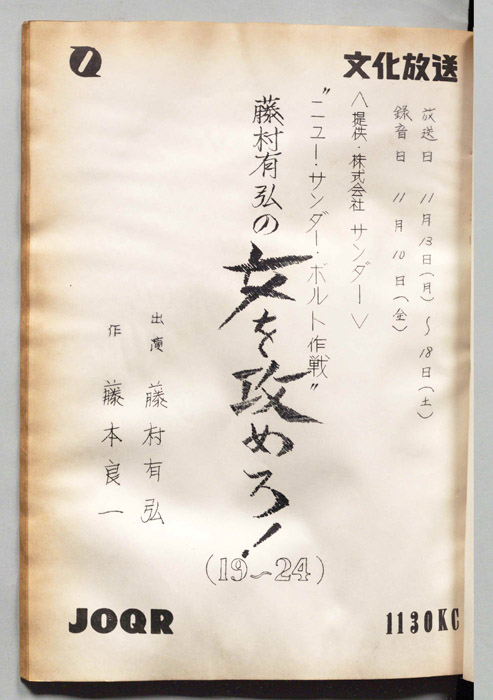 文化放送
放送日 11月13日(月)〜18日(土)
録音日 11月10日(金)
〈提供・株式会社 サンダー〉
"ニュー・サンダー・ボルト作戦"
藤村有弘の女を攻めろ!
(19〜24)
出演 藤村有弘
作 藤本良一
JOQR
1130KC